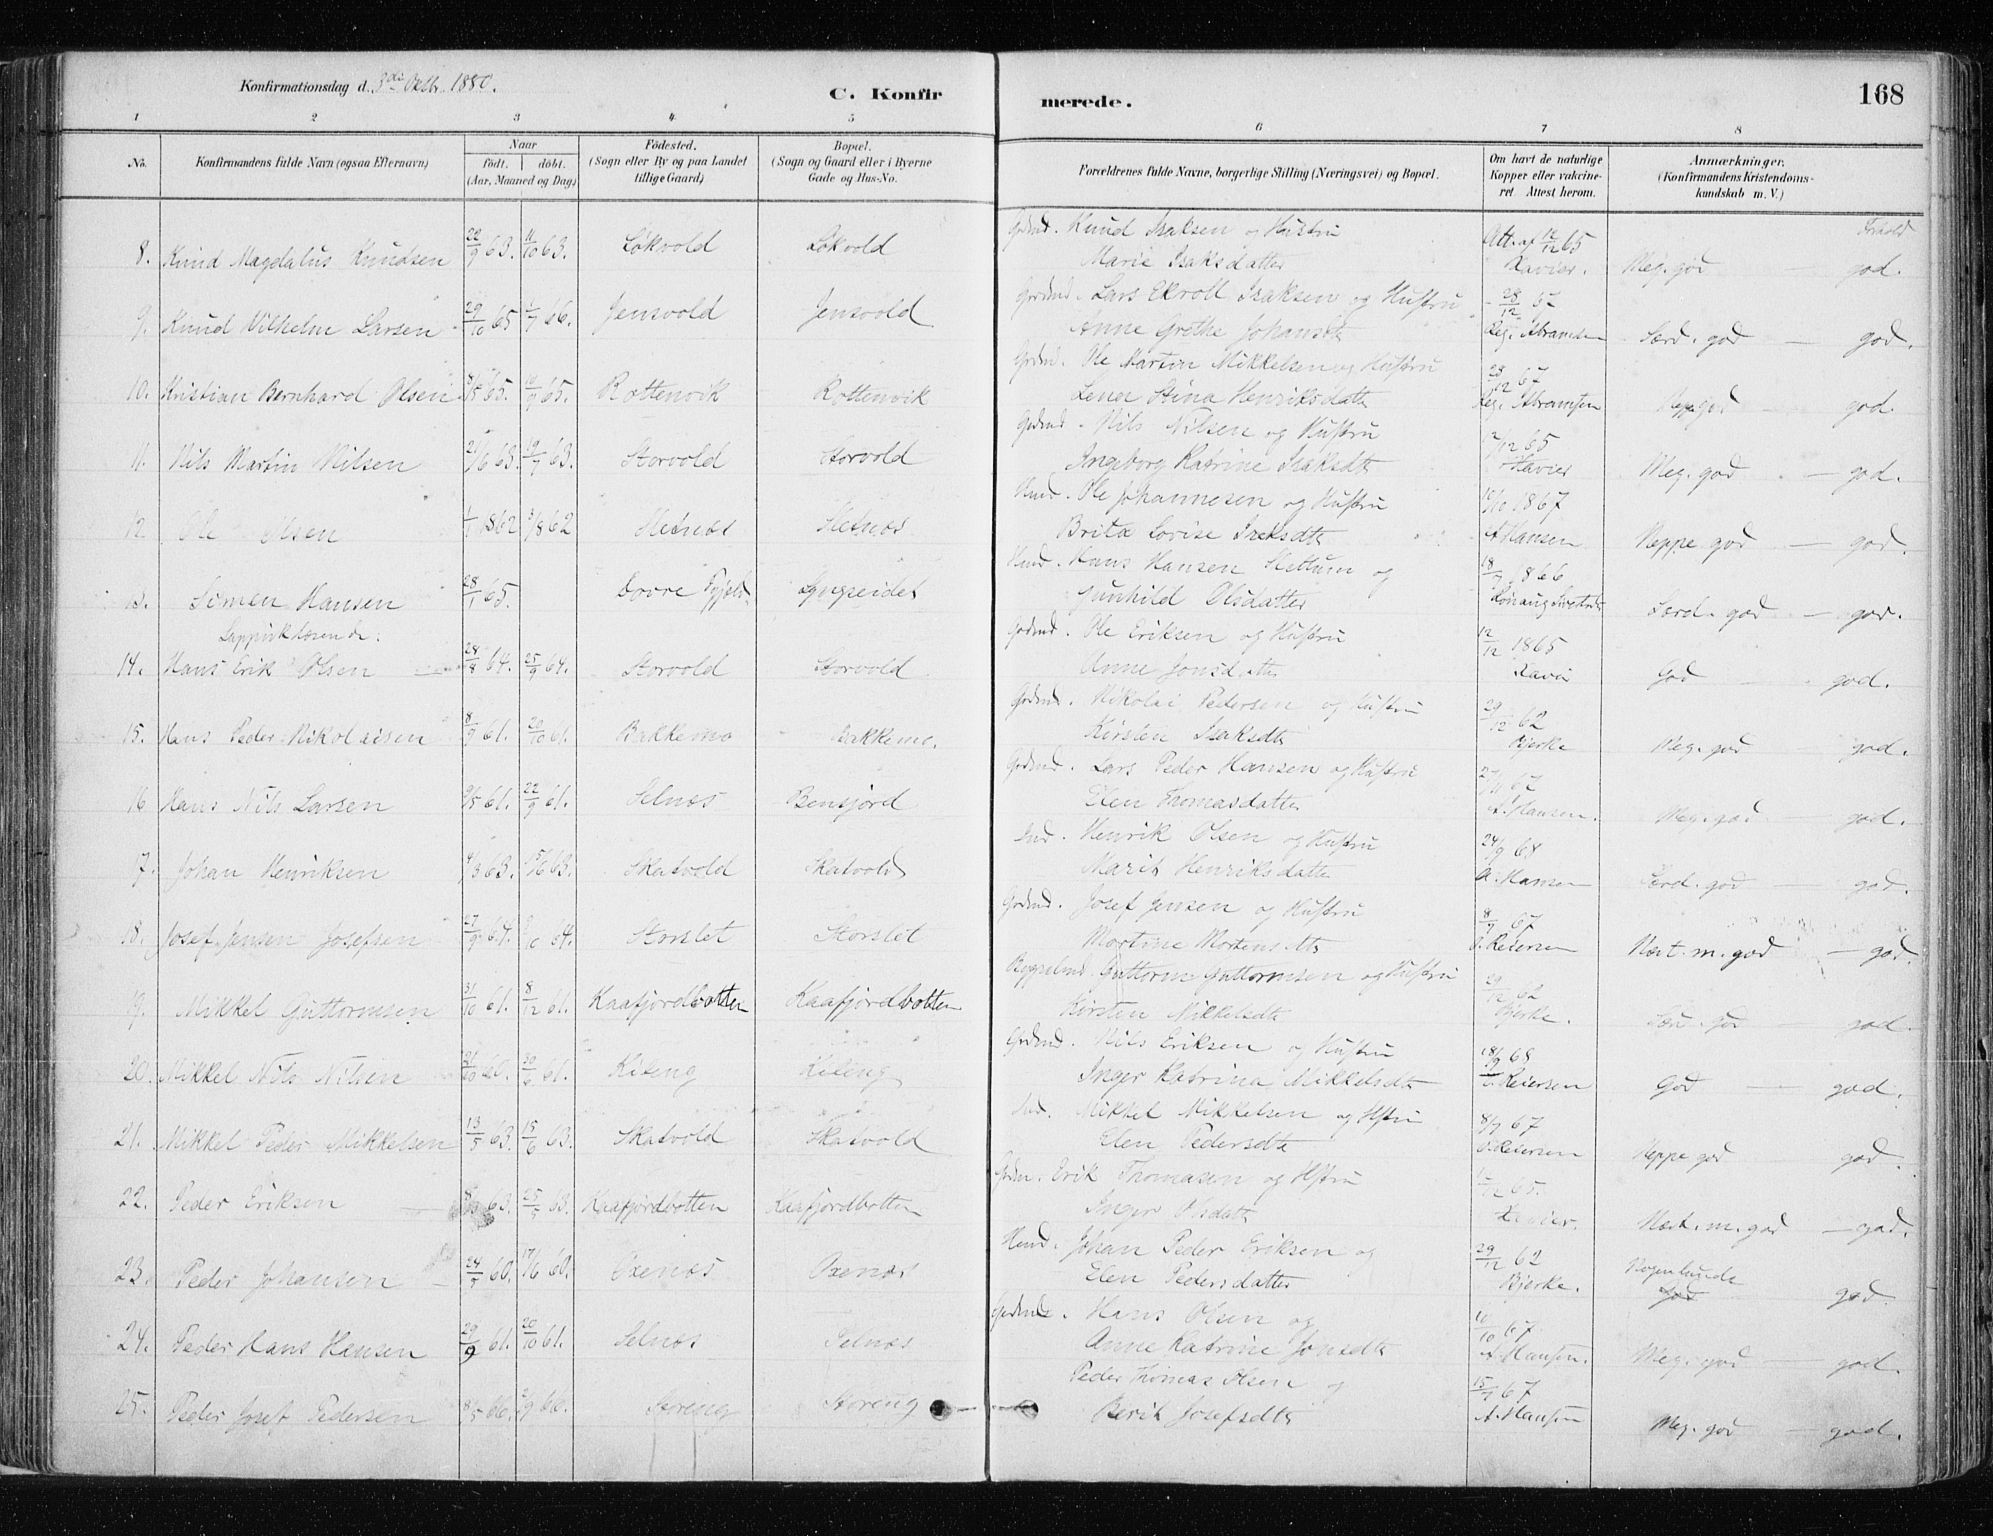 Konfirmationsdag d. 3de Oktb. 1880.
C. Konfirmerede.
168
1 2 3 4 5 6 7 8
No.
Konfirmandens fulde Navn (ogsaa Efternavn)
Naar
født. døbt.
(Aar, Maaned og Dag)
Fødested.
(Sogn eller By og paa Landet
tillige Gaard)
Bopæl.
(Sogn og Gaard eller i Byerne
Gade og Hus-No.
Forældrenes fulde Navne, borgerlige Stilling (Næringsvei) og Bopæl.
Om havt de naturlige
Kopper eller vakcine-
ret Attest herom.
Anmærkninger,
(Konfirmandens Kristendoms-
kundskab m. V.)
Forhold
8. Knud Magdalus Knudsen 22/9 63. 11/10 63. Løkvold Løkvold Gdmd. Knud Isaksen og Hustru Att. af 12/12 65
Marie Isaksdatter Xavier. Meg. god — god.
9. Knud Vilhelm Larsen 29/10 65 1/7 66. Jensvold Jensvold Gdmd. Lars Ekroll Isaksen og Hustru 28/12 67
Anne Grethe Johansdt Abramsen Særd. god — god.
10. Kristian Bernhard Olsen 65. 65. Rottenvik Rottenvik Gdmd. Ole Martin Mikkelsen og Hustru 28/12 67
Lena Stina Henriksdatter Abramsen Neppe god god.
11. Nils Martin Nilsen 21/6 63. 19/7 63. Storvold Storvold Gdmd. Nils Nilsen og Hustru 12/12 65
Ingeborg Katrine Isaksdt Xavier Meg. god — god.
12. Ole Olsen 1/1 1862 3/8 62 Sletnæs Sletnæs Hmd. Ole Johannesen og Hustru 10/10 1867
Brita Lovise Isaksdt A Hansen Neppe god — god.
13. Simen Hansen 28/1 65. Dovre Lyngseidet Hmd. Hans Hansen Slettum og 1866
Gunhild Olsdatter Særd. god — god.
14. Hans Erik Olsen 28/8 64. 25/9 64. Storvold Storvold Gdmd. Ole Eriksen og Hustru 12/12 1865
Anne Jonsdatter God god.
15. Hans Peder Nikolaisen 8/9 61. 20/10 61. Bakkemo Bakkemo. Gdmd. Nikolai Pedersen og Hustru 29/12 62
Kirsten Isaksdt Bjerke Meg. god god.
16 Hans Nils Larsen 9/5 61. 22/9 61. Selnæs Bensjord Gdmd. Lars Peder Hansen og Hustru 67
Elen Thomasdatter A. Hansen. Meg. god — god.
17. Johan Henriksen 4/3 63. 15/6 63. Skatvold Skatvold Ind. Henrik Olsen og Hustru 24/9 68
Marit Henriksdatter A. Hansen Særd. god — god.
18. Josef Jensen Josefsen 27/9 64. 64. Storslet Storslet Gdmd. Josef Jensen og Hustru 8/7 67
Martine Mortensdt Reiersen Nært. m. god — god.
19. Mikkel Guttormsen 31/10 61. 8/12 61. Kaafjordbotten Kaafjordbotten Bygselmd. Guttorm Guttormsen og Hustru 29/12 62
Kirsten Mikkelsdt Bjerke. god.
20. Mikkel Nils Nilsen 21/10 60. 30/6 61. Kiteng Kiteng Gdmd. Nils Eriksen og Hustru 18/9 68
Inger Katrina Mikkelsdt Reiersen God — god.
21. Mikkel Peder Mikkelsen 13/5 63. 15/6 63. Skatvold Skatvold Ind. Mikkel Mikkelsen og Hstru 8/7 67
Elen Pedersdt Reiersen Neppe god — god.
22. Peder Eriksen 63. 25/5 63. Kaafjordbotten Kaafjordbotten Erik Thomasen og Hstru 12/12 65.
Inger Olsdatt Xavier. Nært. m. god — god.
23. Peder Johansen 24/5 60. 17/6 60. Oxenæs Oxenæs Hmd. Johan Peder Eriksen og 29/12 62
Elen Pedersdatter Bjerke. Nogenlunde
god.
24. Peder Hans Hansen 29/9 61. 20/10 61. Selnæs Selnæs Gdmd. Hans Olsen og 10/10 67
Anne Katrine Jonsdt A. Hansen. Meg. god — god.
25. Peder Josef Pedersen 8/5 66. 2/9 66. Storeng Storeng Peder Thomas Olsen og 15/7 67
Berit Josefsdt A. Hansen Meg. god — god.